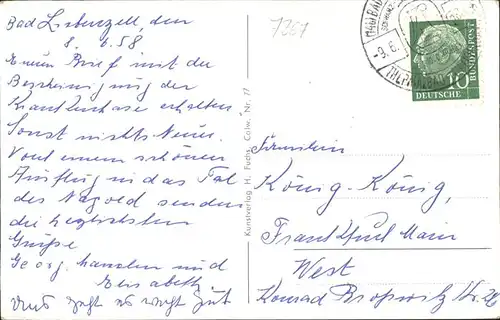 Bad Liebenzell, den
8. 6. 58
Euren Brief mit der
Bescheinigung der
Krankenkasse erhalten
Sonst nichts Neues.
Von einem schönen
Ausflug in das Tal
der Nagold senden
die herzlichsten
Grüße
Georg, und
Elisabeth
uns geht es recht gut
7367
Kunstverlag H. Fuchs, Calw, Nr. 77
-9.6.
10
DEUTSCHE
BUNDESPOST
Fräulein
König-König,
Frankfurt Main
West
Konrad Str. 26